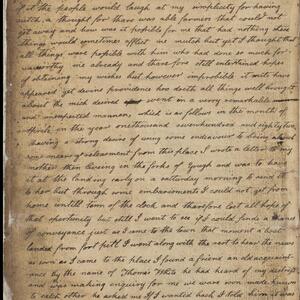 of the people would laugh at my simplicity for having
such, a thought for there was able farmers that could not
get away and how was it posible for me that had nothing these
things would sometimes afflict me much but yet I thought that
all things were posible with him who had done so much for
unworthy me already and therefore still entertained hopes
of obtaining my wishes but however improbable it might have
appeared yet devine providence who doeth all things well brought
about the much desired event in a very remarkable
and unexpected manner, which is as follows in the month of
April in the year onethousand sevenhundred and eighty two
Having a strong desire of using some endeavour to bring about
my releasement from this place I wrote a letter to my
mother then liveing on the forks of Yough and was to have
it at the landing early on a satturday morning to send it
to her but through some embarasments I could not get from
home untill tenn of the clock and therefore lost all hopes of
that oportunity but still I went to see if I could finde a chance
of conveyance just as I came to the town that moment a boat
landed from fort pitt I went along with the rest to hear the news
as soon as I came to the place I found a friend an old acquaint-
ance by the name of Thomas White he had heard of my distress
and was making enquiry for me we were soon made known
to each other he asked me if I wanted back I told him it was